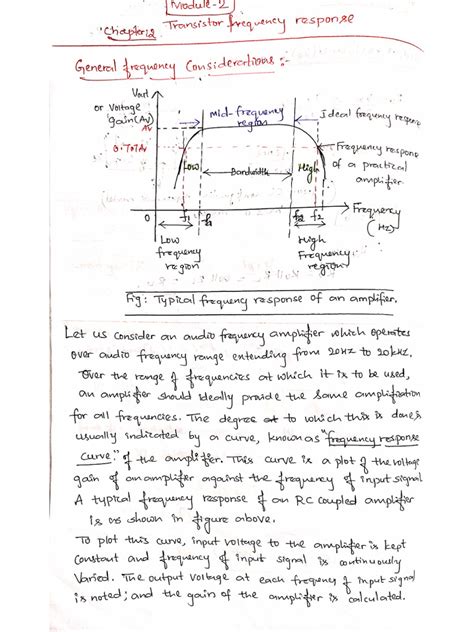 Module-2
Chapter:2 Transistor frequency response
General frequency Considerations :-
Vout
or Voltage
gain(Av)
Mid-frequency
region
Ideal frequency
Av
0.707Av
Frequency
of a practical
amplifier
Low
Bandwidth
High
0
f1
f2
Frequency
(Hz)
Low
frequency
region
High
Frequency
region
Fig: Typical frequency response of an amplifier.
Let us consider an audio frequency amplifier which operates
over audio frequency range extending from 20Hz to 20kHz.
Over the range of frequencies at which it is to be used,
an amplifier should ideally provide the same amplification
for all frequencies. The degree to which this is done is
usually indicated by a curve, known as "frequency response
curve" of the amplifier. This curve is a plot of the voltage
gain of an amplifier against the frequency of input signal
A typical frequency response of an RC coupled amplifier
is as shown in figure above.
To plot this curve, input voltage to the amplifier is kept
Constant and frequency of input signal is continuously
Varied. The output voltage at each frequency of input signal
is noted; and the gain of the amplifier is calculated.